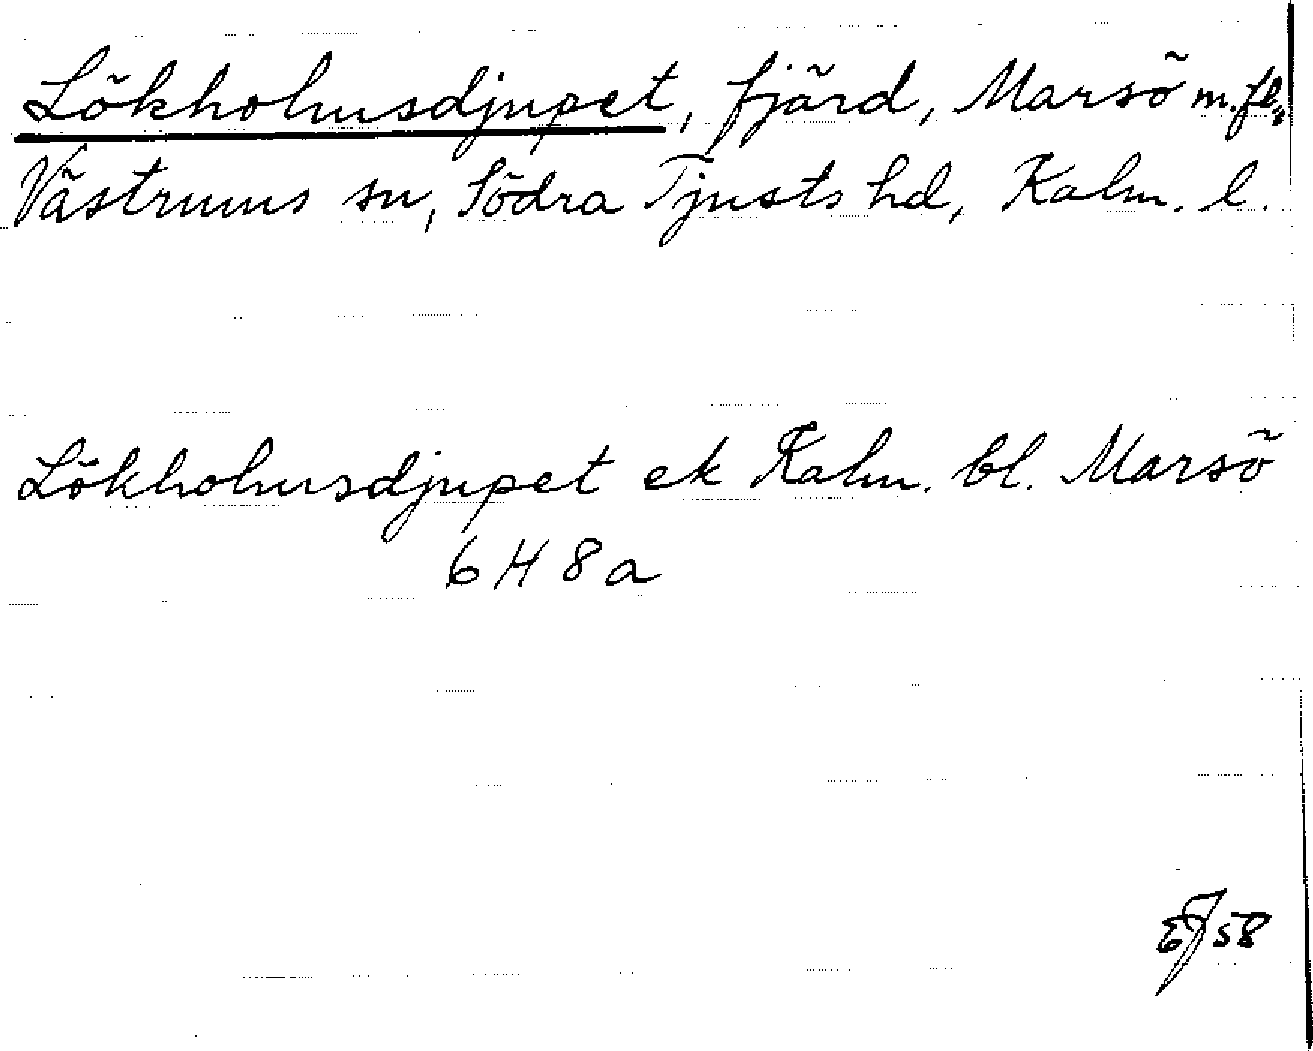 Lökholmsdjupet, fjärd, Marsö m.fl.,
Västrums sn, Södra Tjusts hd, Kalm. l.
Lökholmsdjupet ek Kalm. bl. Marsö
6 H 8 a
EJ 58